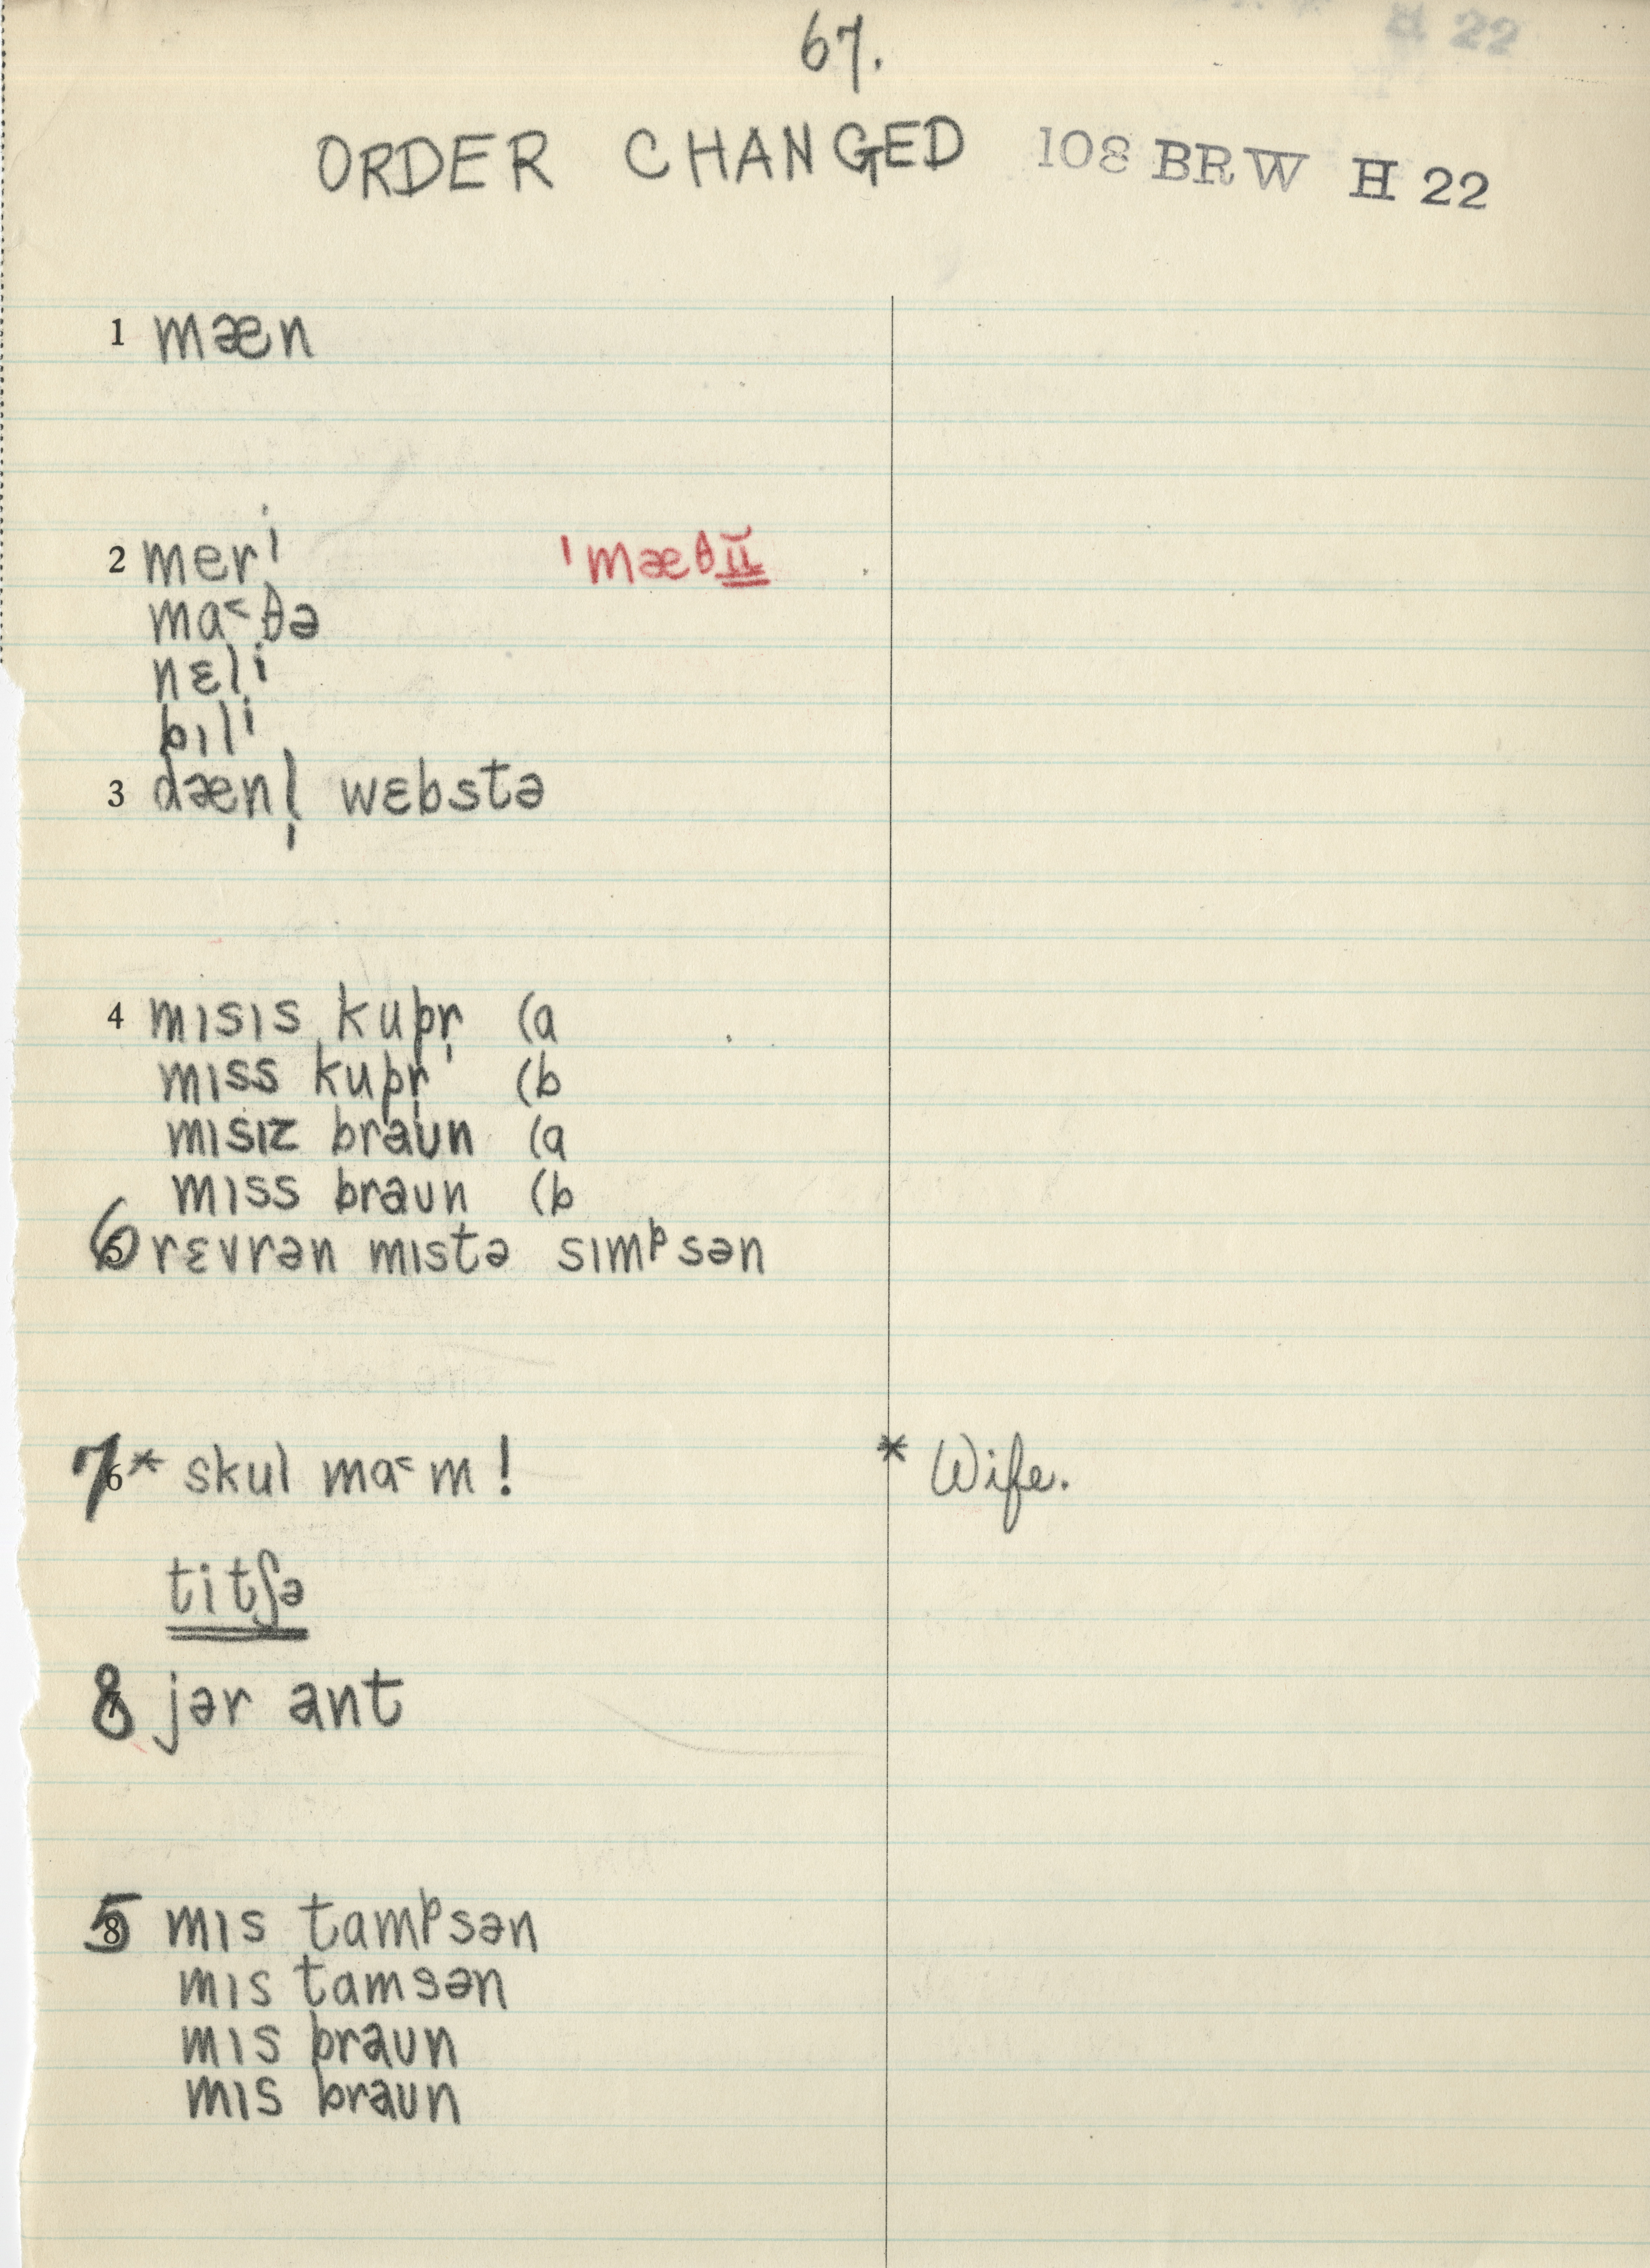 67.
ORDER CHANGED 108 BRW H 22
1 mæn
2 meri ˈmæθɪ̆ɪ̆
ma˂θə
nɛli
bɪli
3 dænl̩ wɛbstə
4 mɪsɪs kupr̩ (a
mɪss kupr̩ (b
mɪsɪz braʊn (a
mɪss braʊn (b
6 rɛvrən mɪstə sɪmᵖsən
7 * skul ma˂m! * Wife.
titʃə
8 jər ant
5 mɪs tamᵖsən
mɪs tamsən
mɪs braʊn
mɪs braʊn